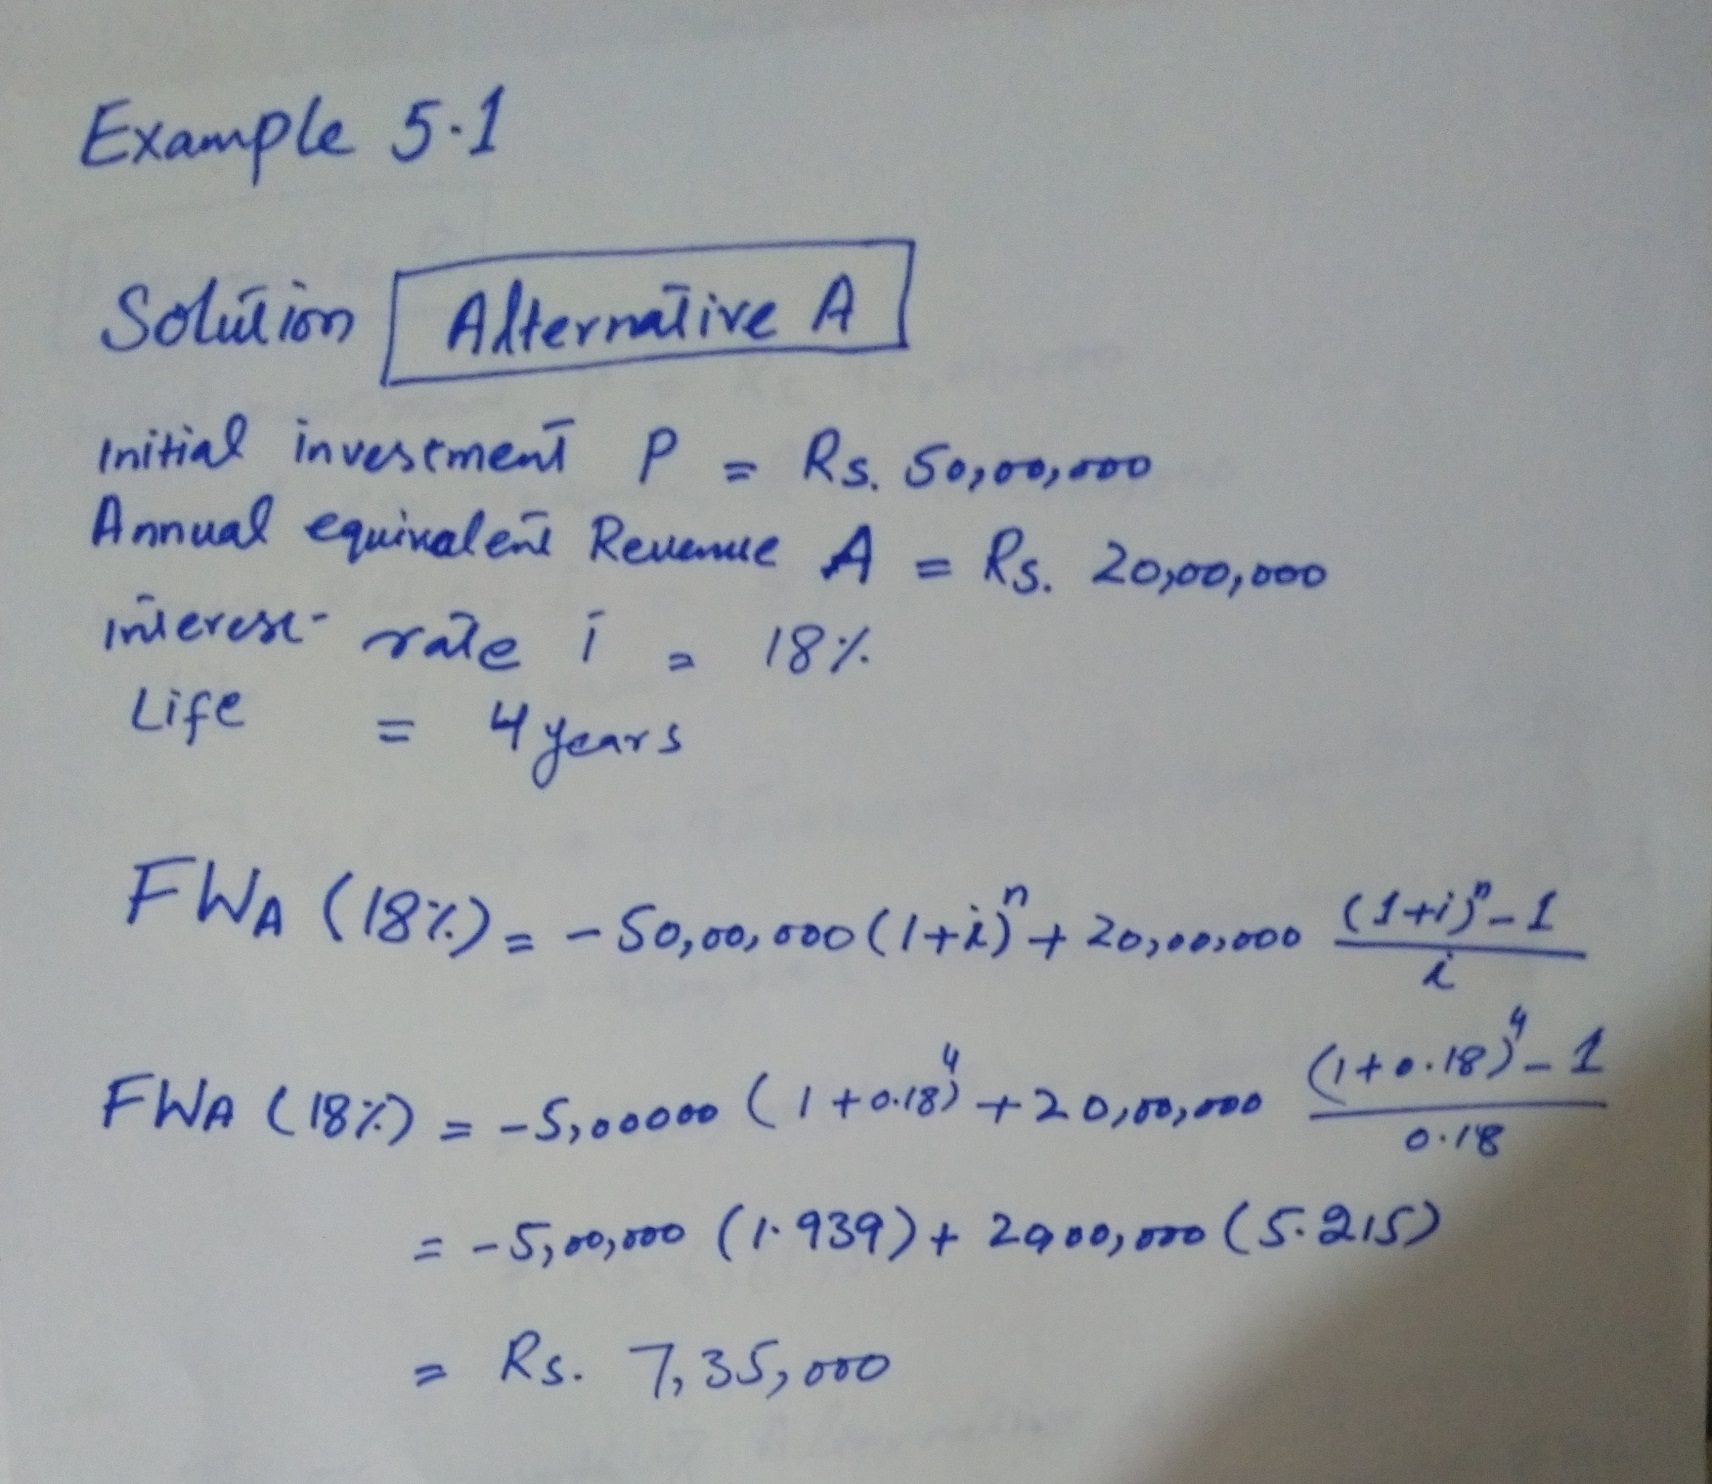 Example 5.1
Solution Alternative A
Initial investment P = Rs. 50,00,000
Annual equivalent Revenue A = Rs. 20,00,000
interest rate i = 18%
Life = 4 years
FWA (18%) = -50,00,000 (1+i)^n + 20,00,000 ((1+i)^n - 1)/i
FWA (18%) = -5,00000 (1+0.18)^4 + 20,00,000 ((1+0.18)^4 - 1)/0.18
= -5,00,000 (1.939) + 2000,000 (5.215)
= Rs. 7,35,000